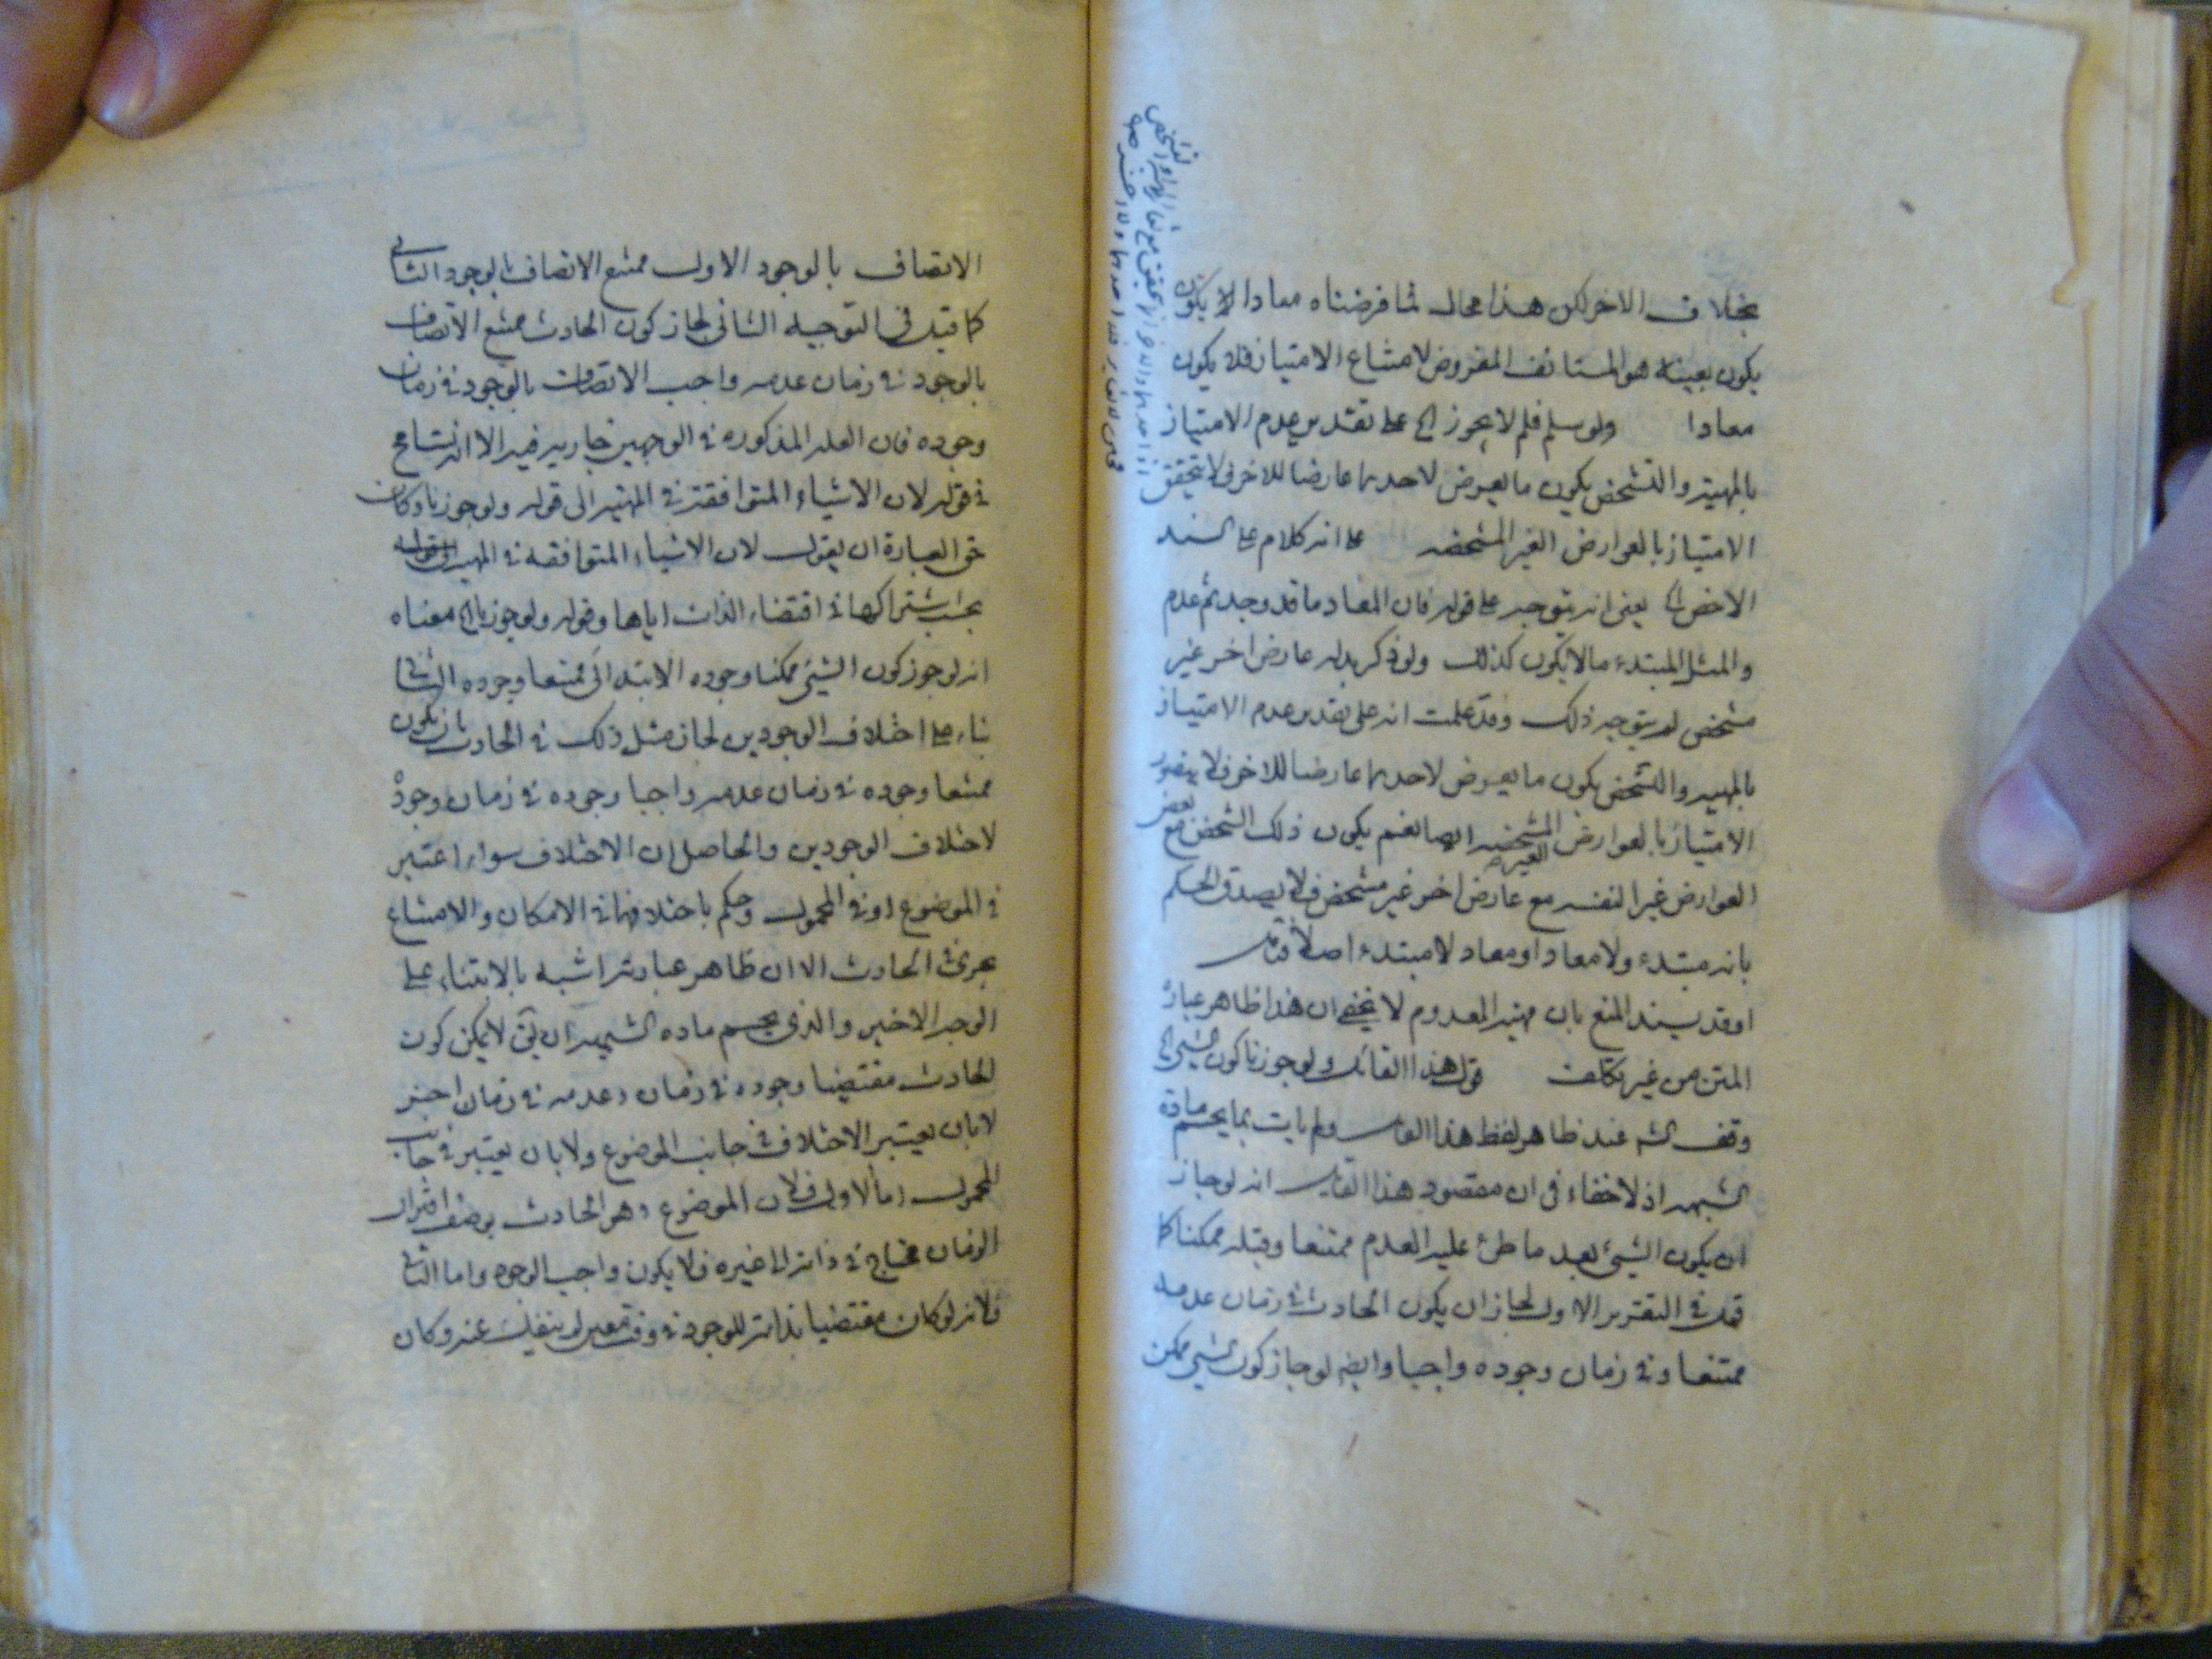 بخلاف الاخر لكن هذا محال لما فرضناه معادا لا يكون
يكون بعينه هو المستانف المفروض لامتناع الامتياز فلا يكون
معادا ولو سلم فلم لا يجوز الخ على تقدير عدم الامتياز
بالمهية والتشخص يكون ما يعرض لاحدهما عارضا للاخر فلا يتحقق
الامتياز بالعوارض الغير المشخصه على انه كلام على السند
الاخص الخ يعنى انه يتوجه على قوله فان المعاد ما قد وجد ثم عدم
والمثل المبتدء ما لا يكون كذلك ولو ذكر بدله عارض اخر غير
مشخص لم يتوجه ذلك وقد علمت انه على تقدير عدم الامتياز
بالمهية والتشخص يكون ما يعرض لاحدهما عارضا للاخر فلا يتصور
الامتياز بالعوارض الغير المشخصه ايضا نعم يكون ذلك الشخص مع بعض
العوارض غير النفسه مع عارض اخر غير مشخص فلا يصدق الحكم
بانه مبتدء ولا معادا او معاد لا مبتدء اصلا
او قد يسند المنع بان مهية المعدوم لا يخفى ان هذا ظاهر عبارة
المتن من غير تكلف قول هذا القائل ولو جوزنا كون الشئ الخ
وقف الش عند ظاهر لفظ هذا القائل ولم يات بما يحسم مادة
الشبهه اذ لا خفاء فى ان مقصود هذا القائل انه لو جاز
ان يكون الشئ بعد ما طرئ عليه العدم ممتنعا وقبله ممكنا كما
فى التقرير الاول لجاز ان يكون الحادث فى زمان عدمه
ممتنعا وفى زمان وجوده واجبا وايضا لو جاز كون الشئ ممكن
الاتصاف بالوجود الاول ممتنع الاتصاف بالوجود الثانى
كما قيل فى التوجيه الثانى لجاز كون الحادث ممتنع الاتصاف
بالوجود فى زمان عدمه واجب الاتصاف بالوجود فى زمان
وجوده فان العله المذكوره فى الوجهين جاريه فيه الا انه تسامح
فى قوله لان الاشياء المتوافقة فى المهية الى قوله ولو جوزنا وكان
حق العبارة ان يقول لان الاشياء المتوافقه فى المهية
يجب اشتراكها فى اقتضاء الذات اياها وقوله ولو جوزنا الخ معناه
انه لو جوز كون الشيئ ممكنا وجوده الابتدائى ممتنعا وجوده الثانى
بناء على اختلاف الوجودين لجاز مثل ذلك فى الحادث بان يكون
ممتنعا وجوده فى زمان عدمه واجبا وجوده فى زمان وجوده
لاختلاف الوجودين والحاصل ان الاختلاف سواء اعتبر
فى الموضوع او فى المحمول وحكم باختلافهما فى الامكان والامتناع
يجرى فى الحادث الا ان ظاهر عبارته اشبه بالابتناء على
الوجه الاخير والذى يحسم ماده الشبهه ان يق لا يمكن كون
الحادث مقتضيا وجوده فى زمان وعدمه فى زمان اخر
لا بان يعتبر الاختلاف فى جانب الموضوع ولا بان يعتبر فى جانب
المحمول اما الاول فلان الموضوع وهو الحادث بوصف اقتران
الزمان محتاج فى ذاته الى غيره فلا يكون واجب الوجود واما الثانى
فلانه لو كان مقتضيا بذاته للوجود فى وقت معين لم ينفك عنه وكان